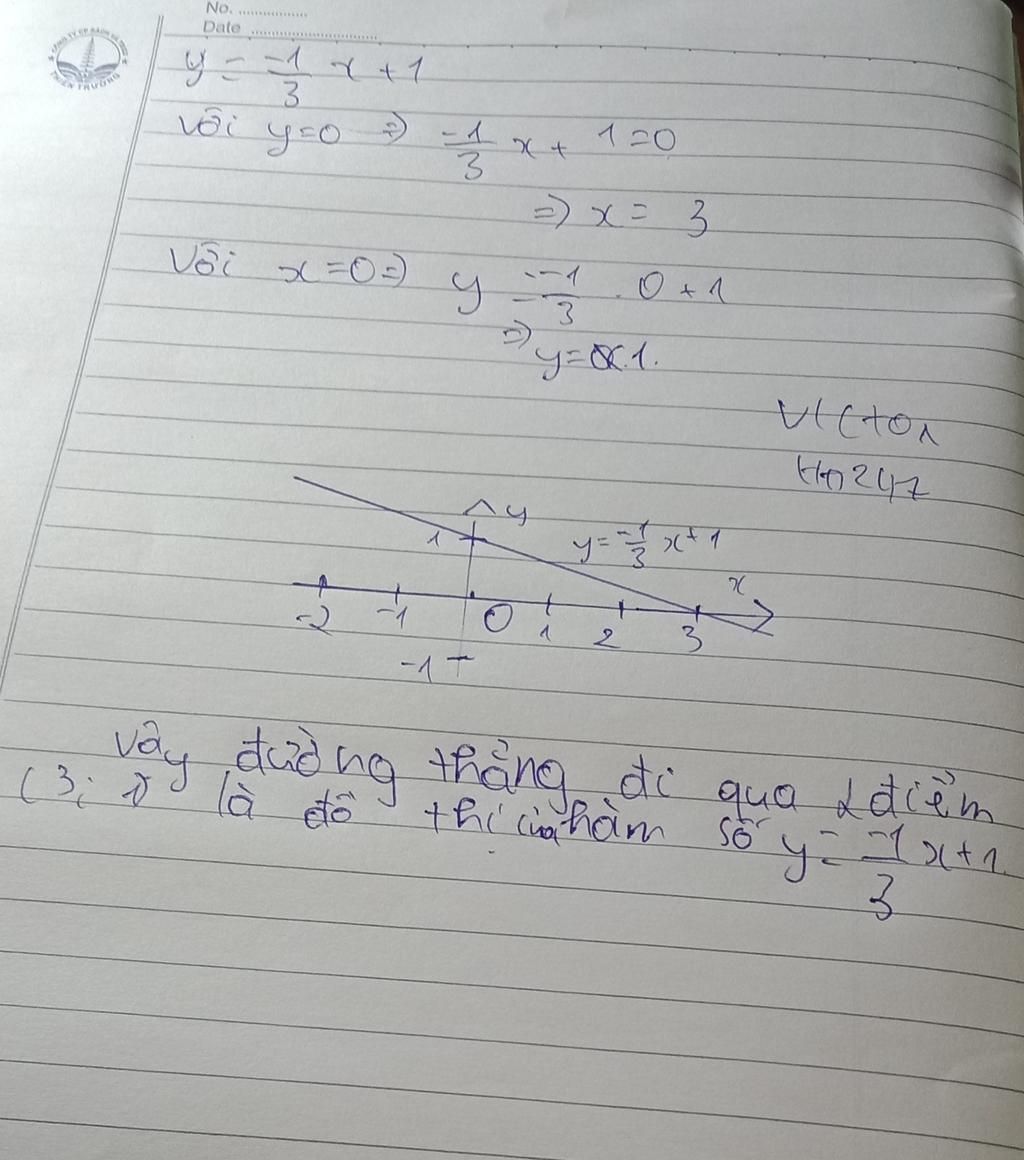 No. ................
Date ..............................
y = -1/3 x + 1
Với y=0 => -1/3 x + 1=0
=> x = 3
Với x=0 => y = -1/3 . 0 + 1
=> y= 1.
y
1
y= -1/3 x + 1
x
-2 -1 0 1 2 3
-1
Vây đường thẳng đi qua 2 điểm
(3; 1) là đồ thị của hàm số y = -1/3 x + 1